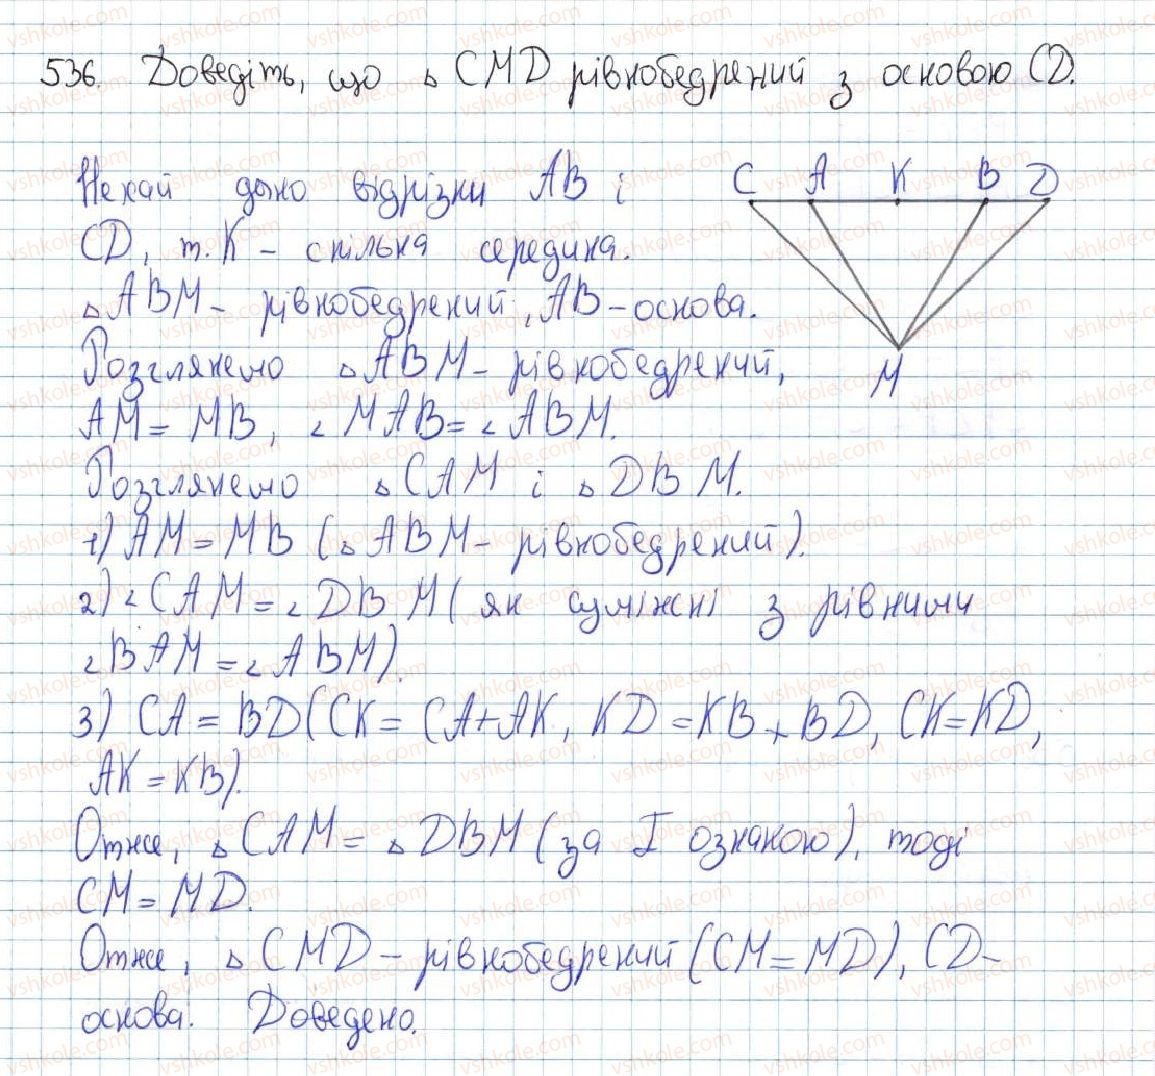 536. Доведіть, що △ CMD рівнобедрений з основою CD.
Нехай дано відрізки AB і
CD, т. K – спільна середина.
△ ABM – рівнобедрений, AB – основа.
Розглянемо △ ABM – рівнобедрений,
AM = MB, ∠ MAB = ∠ ABM.
Розглянемо △ CAM і △ DBM.
1) AM = MB (△ ABM – рівнобедрений).
2) ∠ CAM = ∠ DBM (як суміжні з рівними
∠ BAM = ∠ ABM).
3) CA = BD (CK = CA + AK, KD = KB + BD, CK = KD,
AK = KB).
Отже, △ CAM = △ DBM (за I ознакою), тоді
CM = MD.
Отже, △ CMD – рівнобедрений (CM = MD), CD –
основа. Доведено.
C A K B D
M
vshkole.com